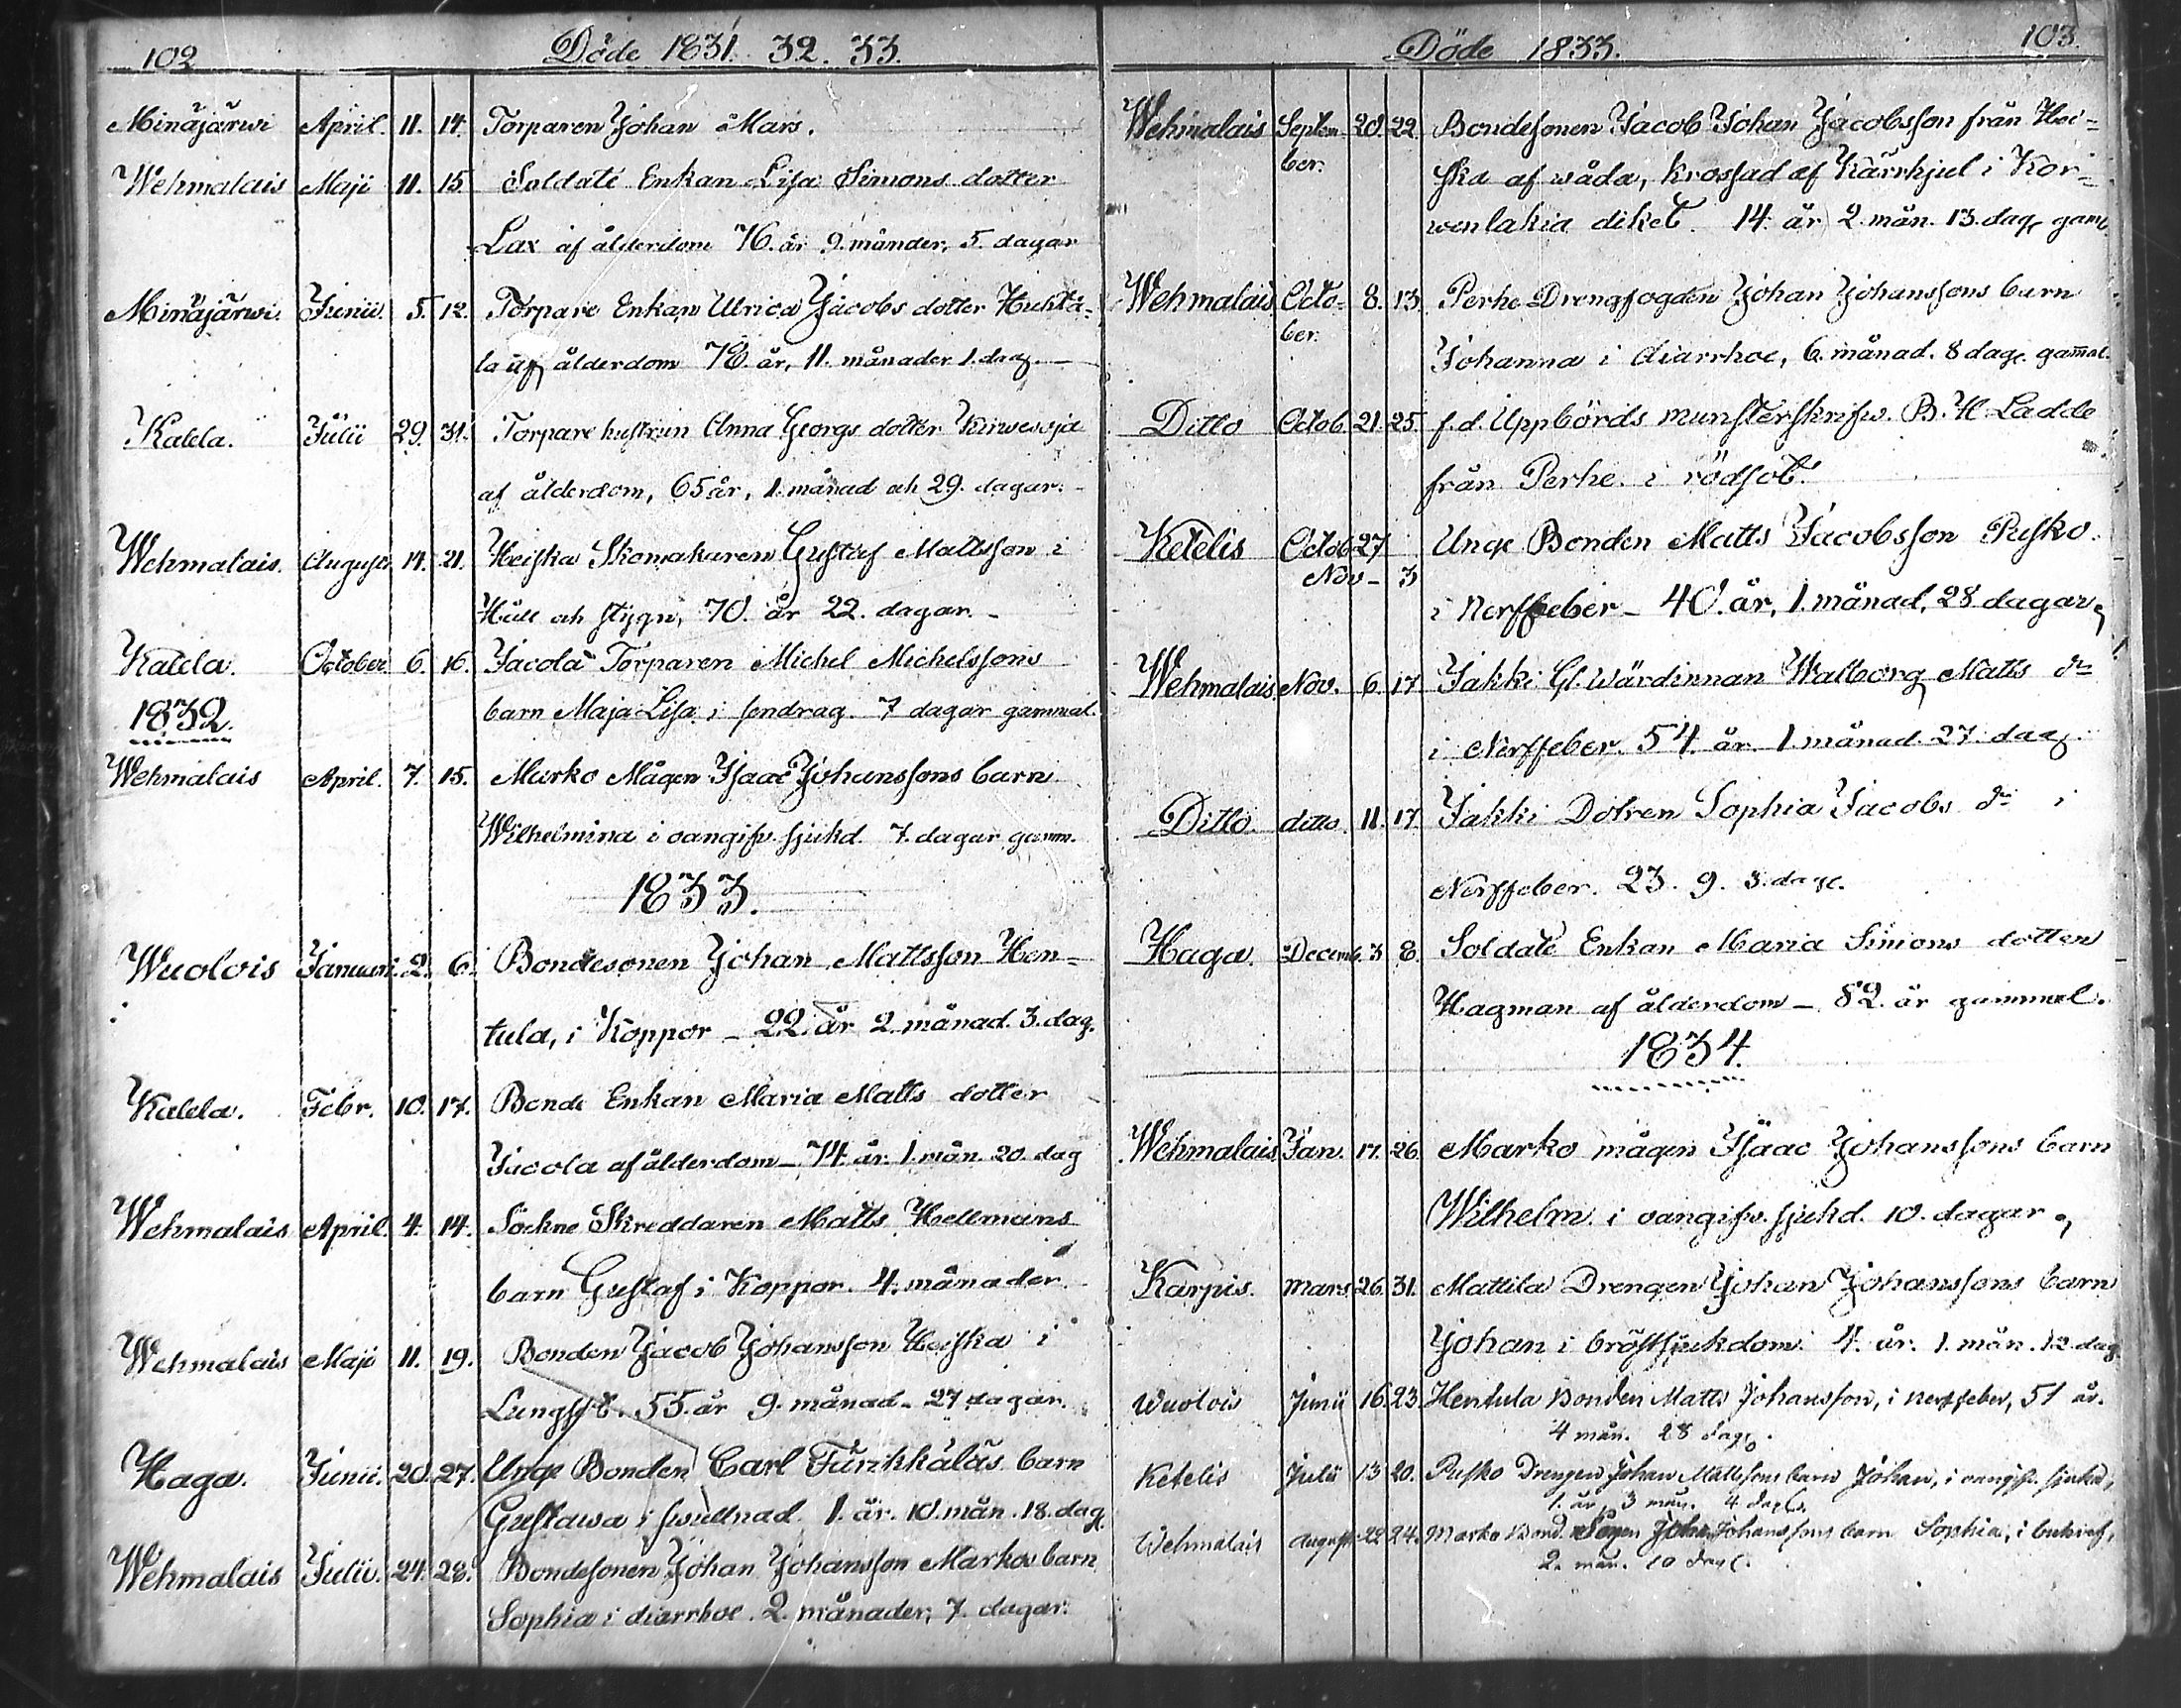 102 Döde 1831. 32. 33.
Minäjärwi April. 11. 17. Torparen Johan Mars.
Wehmalais Maji 11. 15 Soldats Enkan Lisa Simons dotter
Lax af ålderdom 76. år 9. månder, 5. dagar
Minäjärwi Junii. 5. 12. Torpare Enkan Ulrica Jacobs dotter Huhta-
la af ålderdom 78. år, 11. månader 1. dag.
Kalela. Julii 29. 31. Torpare hustrun Anna Georgs dotter
af ålderdom, 65 år, 1. månad och 29. dagar.
Wehmalais. August 14. 21. Heiska Skomakaren Gustaf Mattsson i
Håll och stygn, 70. år 22. dagar.
Kalela. October 6. 16. Jacola Torparen Michel Michelssons
barn Maja Lisa i sendrag. 7 dagar gammal.
1832.
Wehmalais April. 7. 15. Marko Mågen Isaac Johanssons barn
Wilhelmina i oangifv. sjukd. 7. dagar gamm.
1833.
Wuolois Januari. 2. 6. Bondesonen Johan Mattsson Hen=
tula, i Koppor – 22. år 2. månad. 3. dag.
Kalela. Febr. 10. 17. Bonde Enkan Maria Matts dotter
Jacola af ålderdom – 74. år 1. mån. 20. dag
Wehmalais April. 4. 14. Sockne Skreddaren Matts Hellmans
barn Gustaf i Koppor. 4. månader.
Wehmalais Maji 11. 19. Bonden Jacob Johansson Heiska i
55. år 9. månad – 27 dagar.
Haga. Junii. 20. 27. Unge Bonden Carl barn
Gustawa i swullnad. 1. år. 10. mån. 18. dag.
Wehmalais Julii. 24. 28. Bondesonen Johan Johansson Markos barn
Sophia i diarrhoe. 2. månader, 7. dagar.
Döde 1833. 103.
Wehmalais Septem- 20. 22. Bondesonen Jacob Johan Jacobsson från Hei=
ber. ska af wåda, krossad af Kärrhjul i Kor=
wenlakia diket. 14. år 2. mån. 13. dag. gam.
Wehmalais Octo- 8. 13. Perhe Drengfogden Johan Johanssons barn
ber. Johanna i diarrhoe, 6. månad. 8 dage. gamal.
Ditto Octob. 21. 25. f.d. Uppbörds munsterskrifv. B. H. Ladde
från Perhe i rödsot.
Ketelis Octob 27 Unge Bonden Matts Jacobsson Pusko
Nov – 3 i Nerffeber – 40. år, 1. månad, 28. dagar,
Wehmalais. Nov. 6. 17 Jakki Gl. Wärdinnan Walborg Matts dr
i Nerffeber. 54. år. 1 månad. 27. dag.
Ditto. ditto. 11. 17. Jakki Dotren Sophia Jacobs dr i
Nerffeber. 23. 9. 3. dage.
Haga. Decemb. 3 8. Soldats Enkan Maria Simons dotter
Hagman af ålderdom – 82. år gammal.
1834.
Wehmalais Jan. 17. 26. Marko mågen Isaac Johanssons barn
Wilhelm i oangifv. sjukd. 10. dagar,
Karpis. Mars 26. 31. Mattila Drengen Johan Johanssons barn
Johan i bröstsjukdom. 4. år. 1. mån. 12. dag.
Wuolois Junii 16. 23. Hentula Bonden Matts Johansson, i nerffeber, 51 år.
4 mån. 28 dag.
Ketelis Julii 13 20. Pusko Drengen Johan Mattssons barn Johan, i oangifv. sjukd,
1. år, 3 mån. 4 dag.
Wehmalais August 22 24. Marko Bond. Sonen Johan Johanssons barn Sophia, i
2. mån. 10 dag.